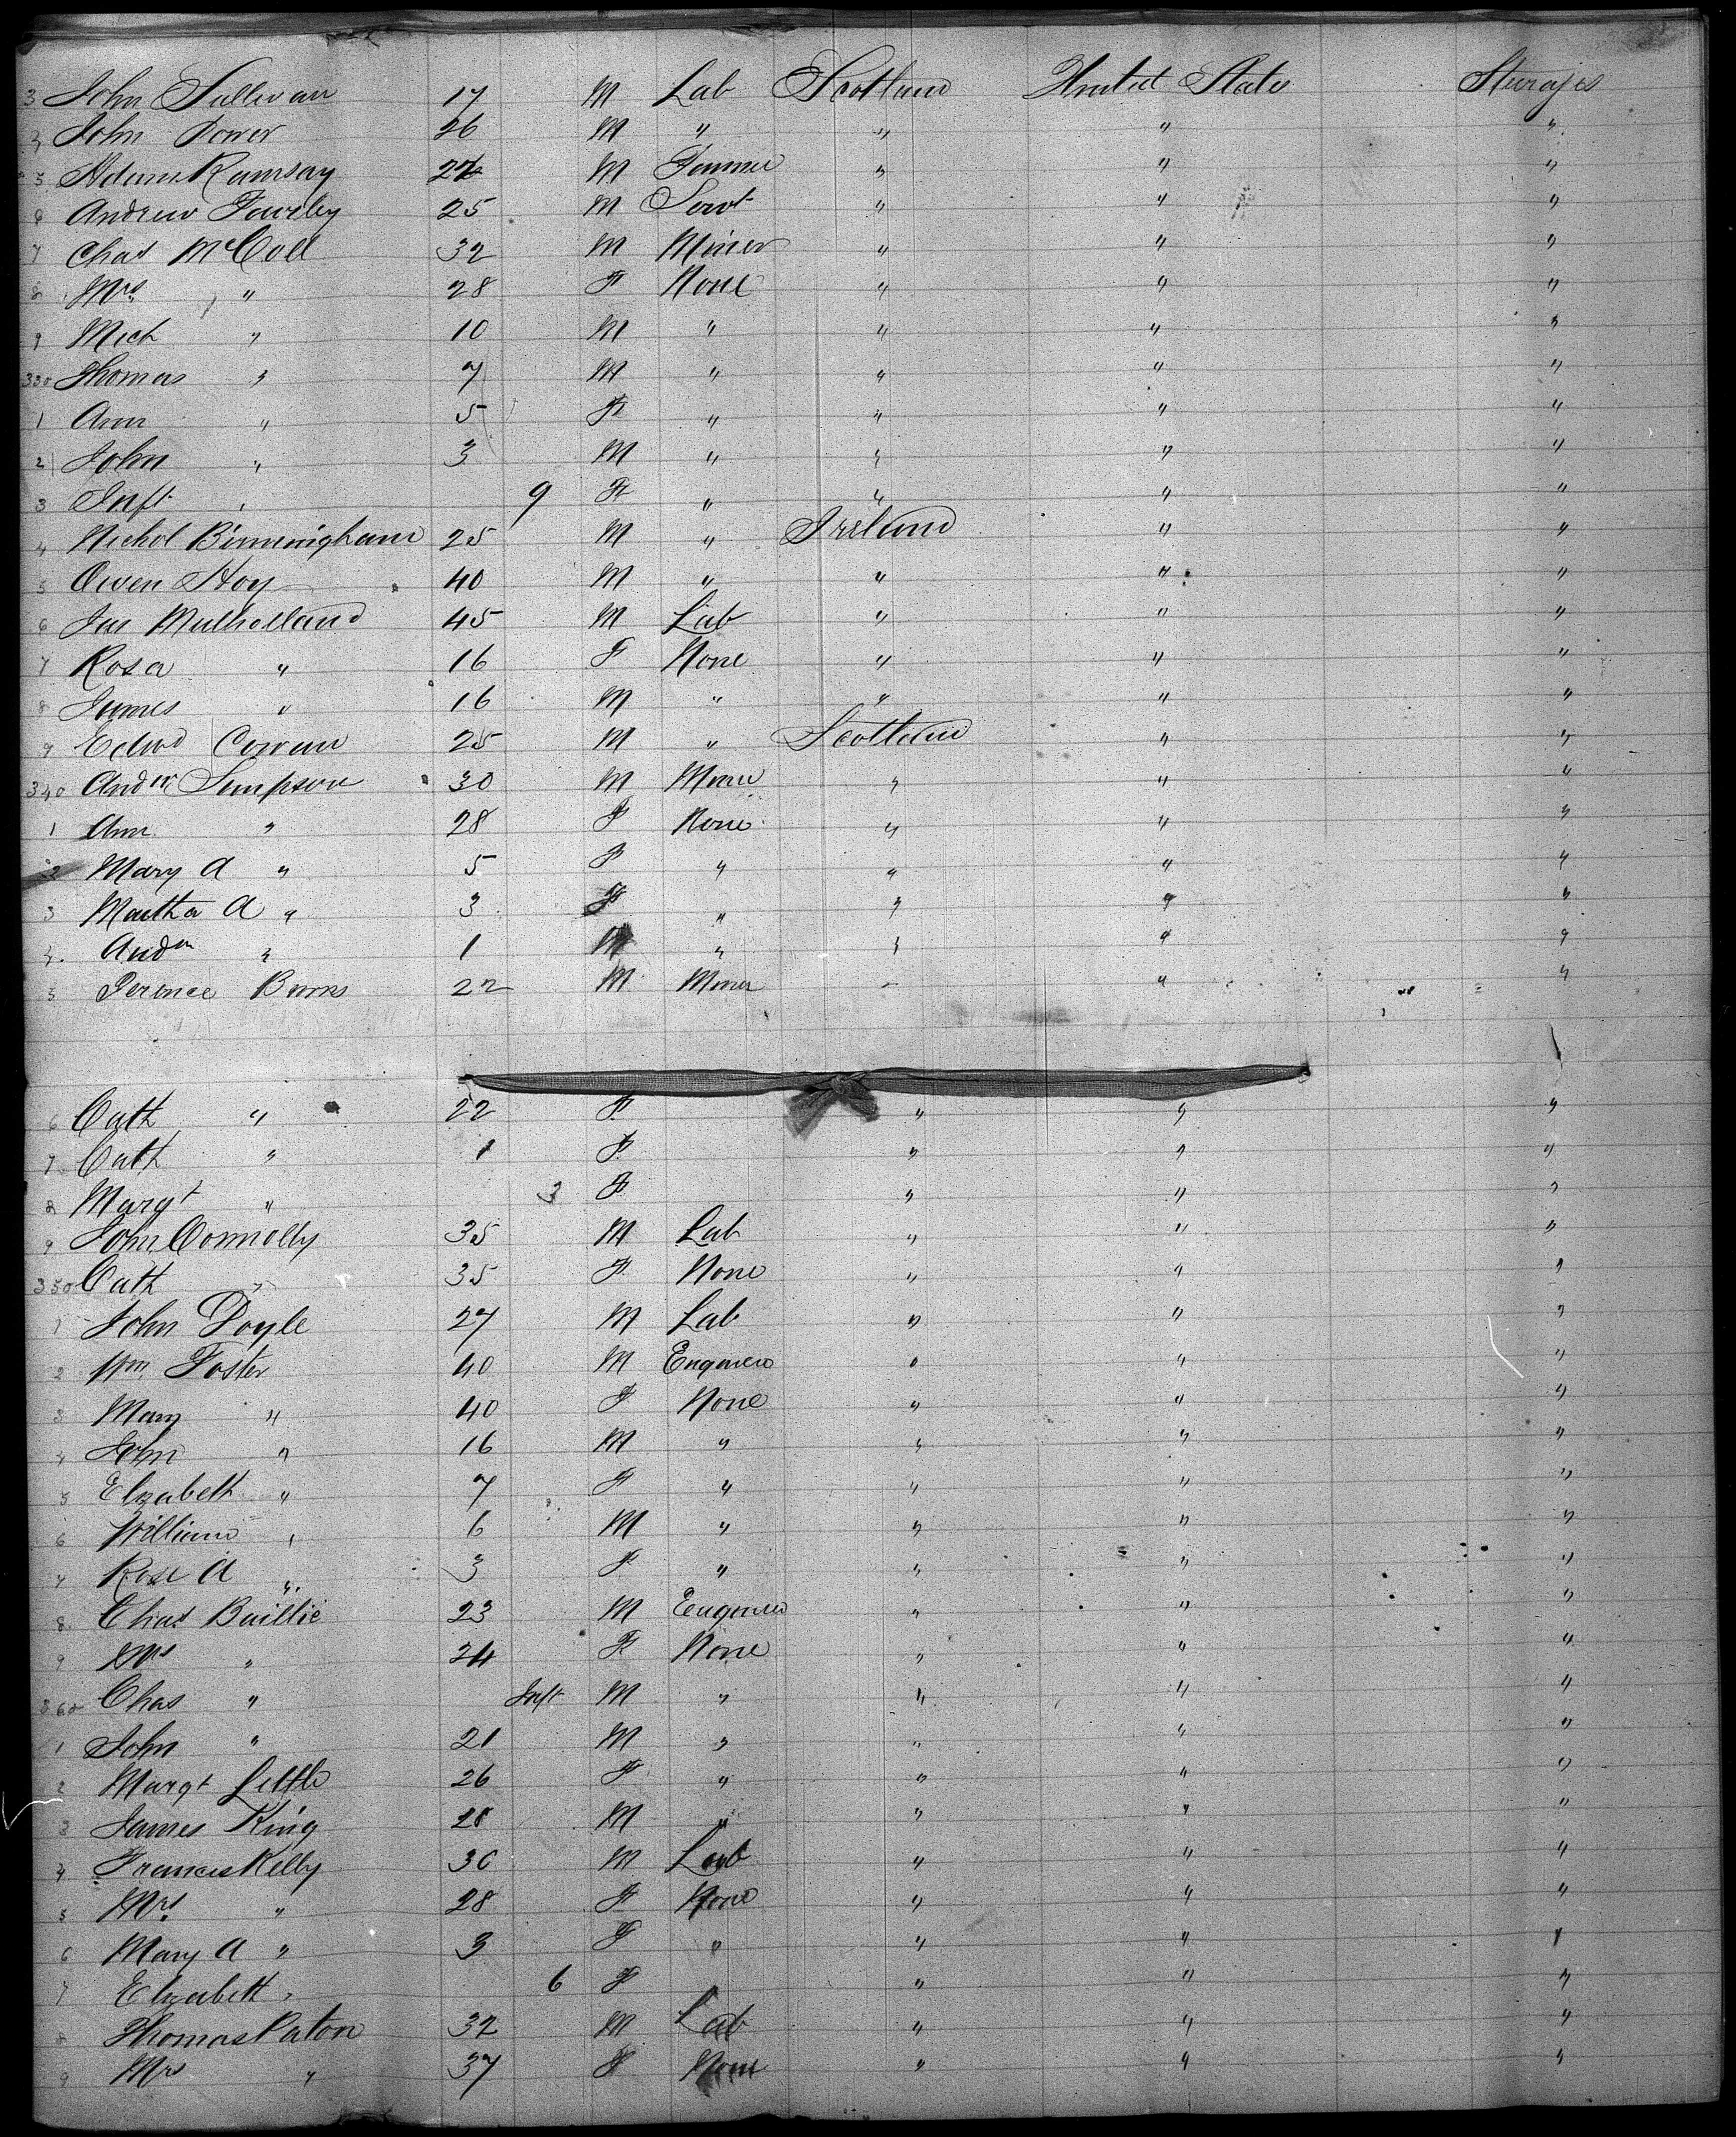 3 John Sullivan 17 M Lab Scotland United States Steerages
John Power 26 M " " " "
5 Adam Ramsay 22 M Farmer " " "
Andrew 25 M Servt " " "
7 Chas McColl 32 M Miner " " "
8 Mrs " 28 F None " " "
9 Mich " 10 M " " " "
330 Thomas " 7 M " " " "
1 Ann " 5 F " " " "
2 John " 3 M " " " "
3 Inft " 9 F " " " "
4 Nichol Birminigham 25 M " Ireland " "
5 Owen Hoy 40 M " " " "
6 Jas Mulholland 45 M Lab " " "
7 Rosa " 16 F None " " "
8 James " 16 M " " " "
9 Edwd Cowan 25 M " Scotland " "
340 Andw Simpson 30 M Miner " " "
1 Ann " 28 F None " " "
2 Mary A " 5 F " " " "
3 Martha A " 3 F " " " "
4 Andw " 1 M " " " "
5 Terence Burns 22 M Miner " " "
6 Cath " 22 F " " "
7 Cath " 1 F " " "
8 Margt " 3 F " " "
9 John Connolly 35 M Lab " " "
350 Cath " 35 F None " " "
1 John Doyle 27 M Lab " " "
2 Wm Foster 40 M Engineer " " "
3 Mary " 40 F None " " "
4 John " 16 M " " " "
5 Elizabeth " 7 F " " " "
6 William " 6 M " " " "
7 Rose A " 3 F " " " "
8 Chas Baillie 23 M Engineer " " "
9 Mrs " 24 F None " " "
360 Chas " Inft M " " " "
1 John " 21 M " " " "
2 Margt Little 26 F " " " "
3 James King 28 M " " " "
4 Francis Kelly 30 M Lab " " "
5 Mrs " 28 F None " " "
6 Mary A " 3 F " " " "
7 Elizabeth " 6 F " " "
8 Thomas Paton 32 M Lab " " "
9 Mrs " 37 F None " " "